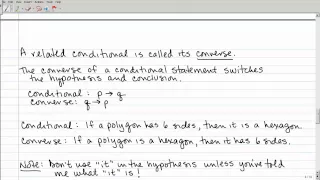 A related conditional is called its converse.
The converse of a conditional statement switches
the hypothesis and conclusion.
Conditional : p → q
Converse : q → p
Conditional : If a polygon has 6 sides, then it is a hexagon.
Converse : If a polygon is a hexagon, then it has 6 sides.
Note: Don't use "it" in the hypothesis unless you've told
me what "it" is!